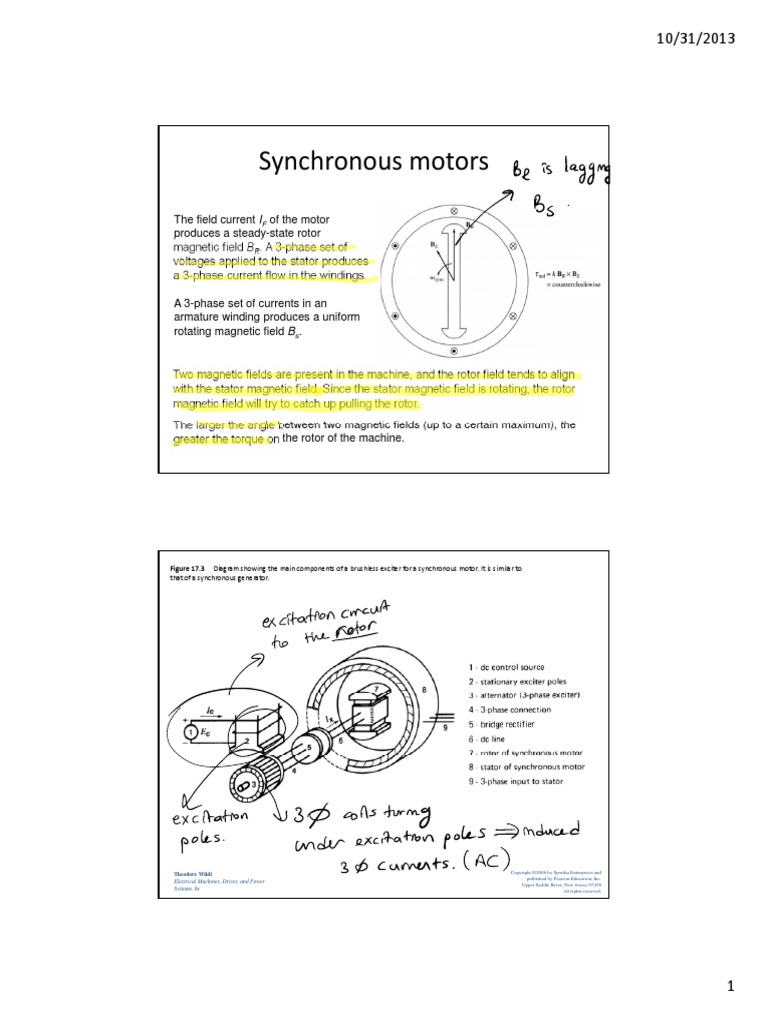 10/31/2013
Synchronous motors
BR is lagging
Bs.
The field current IF of the motor
produces a steady-state rotor
magnetic field BR. A 3-phase set of
voltages applied to the stator produces
a 3-phase current flow in the windings.
A 3-phase set of currents in an
armature winding produces a uniform
rotating magnetic field Bs.
BR
BS
ωsync
τind = k BR × BS
= counterclockwise
Two magnetic fields are present in the machine, and the rotor field tends to align
with the stator magnetic field. Since the stator magnetic field is rotating, the rotor
magnetic field will try to catch up pulling the rotor.
The larger the angle between two magnetic fields (up to a certain maximum), the
greater the torque on the rotor of the machine.
Figure 17.3 Diagram showing the main components of a brushless exciter for a synchronous motor. It is similar to
that of a synchronous generator.
excitation circuit
to the rotor
1 - dc control source
2 - stationary exciter poles
3 - alternator (3-phase exciter)
4 - 3-phase connection
5 - bridge rectifier
6 - dc line
7 - rotor of synchronous motor
8 - stator of synchronous motor
9 - 3-phase input to stator
Ic
+
1
Ec
-
2
3
4
5
6
Ix
7
8
9
excitation
poles.
3Ø coils turning
under excitation poles ⇒ induced
3Ø currents. (AC)
Theodore Wildi
Electrical Machines, Drives, and Power
Systems, 6e
Copyright ©2006 by Sperika Enterprises and
published by Pearson Education, Inc.
Upper Saddle River, New Jersey 07458
All rights reserved.
1